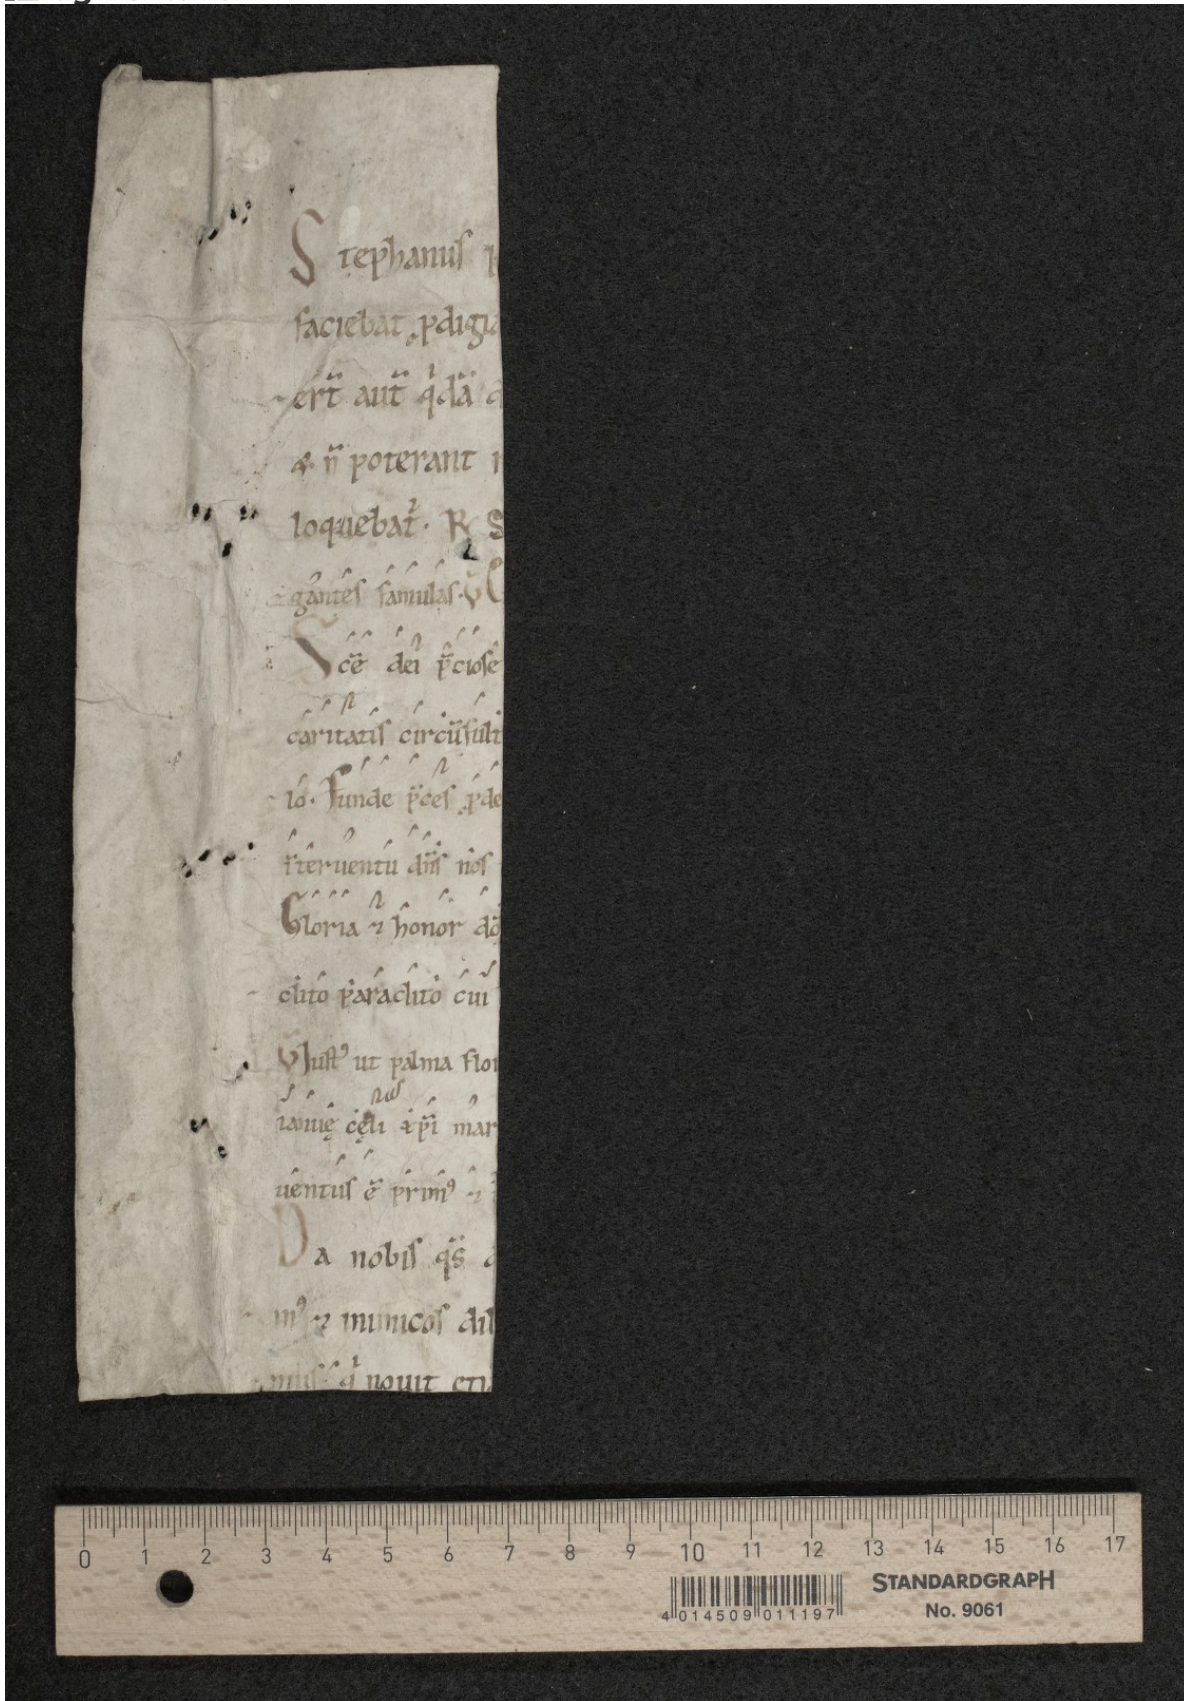 Stephanus
faciebat ꝓdigia
ert̄ aut̄ qͥdā
& n̄ poterant
loquebat᷑. R S
gantes famulas. V
Sc̄e dei p̄ciose
caritatis circūfult
lo. Funde p̄ces ꝓ de
īteruentu dn̄s nos
Gloria ⁊ honor do
clito paraclito cui
V Iustꝰ ut palma flor
ianuę cęli xp̄i mar
uentus ē primꝰ ⁊
Da nobis qs̄
mꝰ ⁊ inimicos dil
mus. qͥ nouit eti
0 1 2 3 4 5 6 7 8 9 10 11 12 13 14 15 16 17
STANDARDGRAPH
No. 9061
4 014509 011197